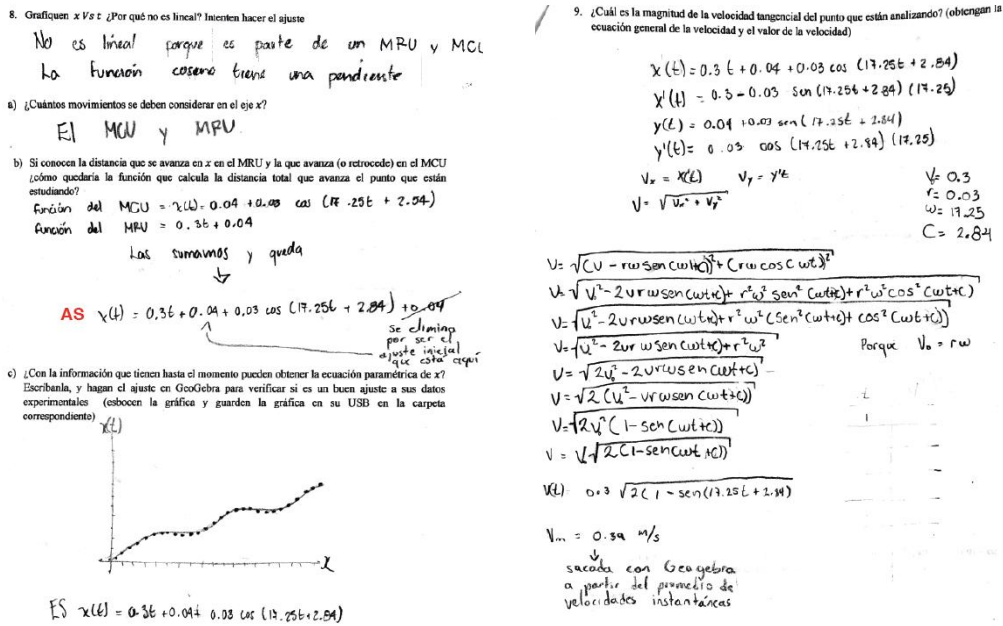 8. Grafiquen x Vs t ¿Por qué no es lineal? Intenten hacer el ajuste
No es lineal porque es parte de un MRU y MCU
La función coseno tiene una pendiente
a) ¿Cuántos movimientos se deben considerar en el eje x?
El MCU y MRU
b) Si conocen la distancia que se avanza en x en el MRU y la que avanza (o retrocede) en el MCU
¿cómo quedaría la función que calcula la distancia total que avanza el punto que están
estudiando?
Función del MCU = x(t) = 0.04 + 0.03 cos (17.25t + 2.54)
función del MRU = 0.3t + 0.04
Las sumamos y queda
AS x(t) = 0,3t + 0.04 + 0,03 cos (17.25t + 2.84) + 0.04
Se elimina
por ser el
ajuste inicial
que esta aquí
c) ¿Con la información que tienen hasta el momento pueden obtener la ecuación paramétrica de x?
Escríbanla, y hagan el ajuste en GeoGebra para verificar si es un buen ajuste a sus datos
experimentales (esbocen la gráfica y guarden la gráfica en su USB en la carpeta
correspondiente)
x(t)
x
ES x(t) = 0.3t + 0.04 + 0.03 cos (17.25t + 2.84)
9. ¿Cuál es la magnitud de la velocidad tangencial del punto que están analizando? (obtengan la
ecuación general de la velocidad y el valor de la velocidad)
x(t) = 0.3 t + 0.04 + 0.03 cos (17.25t + 2.84)
x'(t) = 0.3 - 0.03 sen (17.25t + 2.84) (17.25)
y(t) = 0.04 + 0.03 sen (17.25t + 2.84)
y'(t) = 0.03 cos (17.25t + 2.84) (17.25)
Vx = x'(t) Vy = y't
V = √(Vx² + Vy²)
V= 0.3
r= 0.03
ω= 17.25
C= 2.84
V= √((V - rω sen(ωt+c))² + (rω cos(ωt))²)
V= √(V² - 2vrω sen(ωt+c) + r²ω² sen²(ωt+c) + r²ω² cos²(ωt+c))
V= √(V² - 2vrω sen(ωt+c) + r²ω² (sen²(ωt+c) + cos²(ωt+c)))
V= √(V² - 2vr ω sen(ωt+c) + r²ω²) Porque V₀ = rω
V = √(2V² - 2vrω sen(ωt+c))
V = √(2 (V² - vrω sen(ωt+c)))
V= √(2V² (1 - sen(ωt+c)))
V = V √(2(1 - sen(ωt+c)))
V(t) 0.3 √(2(1 - sen(17.25t + 2.84)
Vm = 0.39 m/s
sacada con Geogebra
a partir del promedio de
velocidades instantáneas